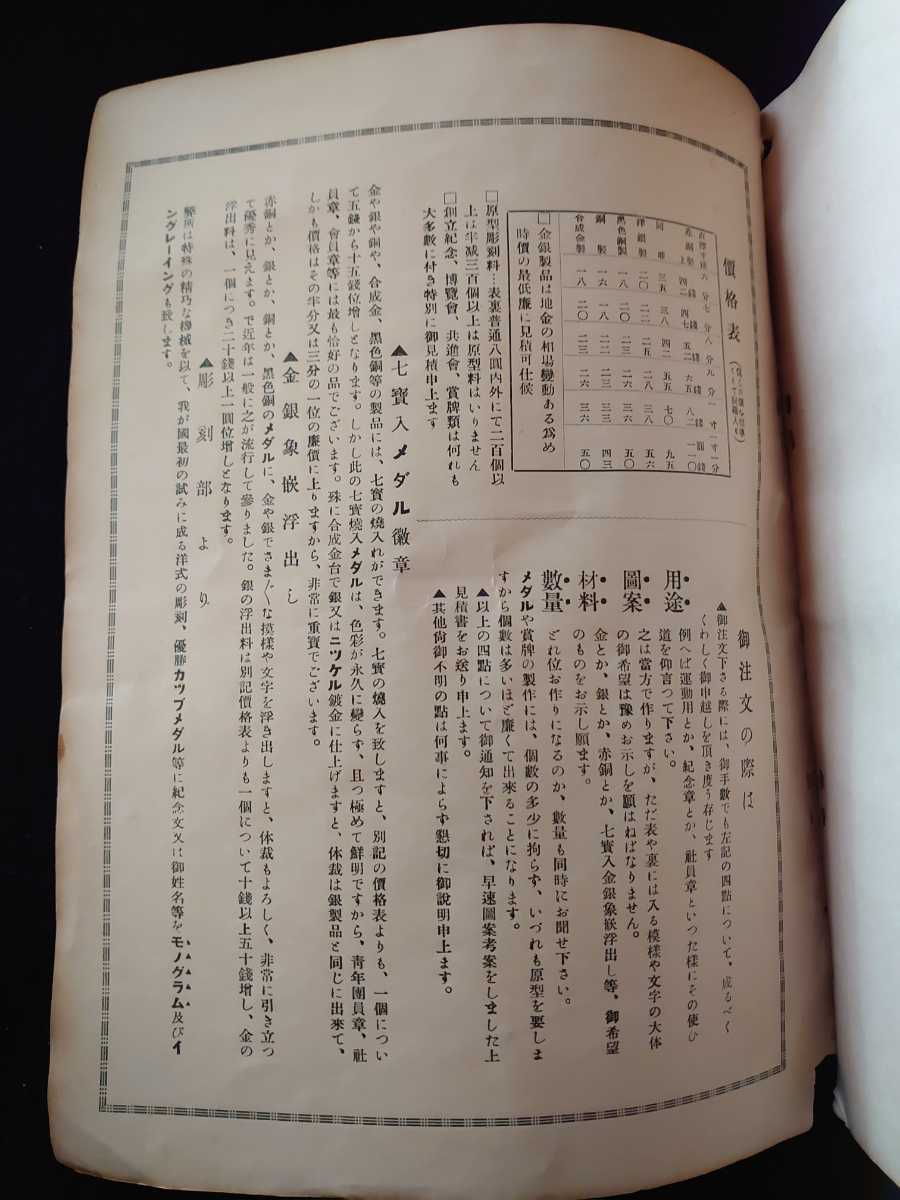 御注文の際は
▲御注文下さる際には、御手數でも左記の四點について、成るべく
くわしく御申越しを頂き度う存じます
用途
例へば運動用とか、紀念章とか、社員章といつた樣にその使ひ
道を仰言つて下さい。
圖案
之は當方で作りますが、ただ表や裏には入る模樣や文字の大体
の御希望は豫めお示しを願はねばなりません。
材料
金とか、銀とか、赤銅とか、七寳入金銀象嵌浮出し等、御希望
のものをお示し願ます。
數量
どれ位お作りになるのか、數量も同時にお聞せ下さい。
メダルや賞牌の製作には、個數の多少に拘らず、いづれも原型を要しま
すから個數は多いほど廉くて出來ることになります。
▲以上の四點について御通知を下されば、早速圖案考案をしました上
見積書をお送り申上ます。
▲其他尙御不明の點は何事によらず懇切に御說明申上ます。
價格表
直徑寸法 六分 七分 八分 九分 一寸 一寸一分
赤銅上 四二錢 四七錢 五二錢 六五錢 八二錢 一一〇錢
同 三五 三八 四二 五五 七〇 九五
洋銀製 二〇 二二 二五 二八 三八 五六
黑色銅製 一八 二〇 二三 二六 三六 五〇
銅製 一六 一八 二〇 二三 三三 四三
合成金製 一八 二〇 二三 二六 三六 五〇
□金銀製品は地金の相場變動ある爲め
時價の最低廉に見積可仕候
□原型彫刻料…表裏普通八圓內外にて二百個以
上は半減三百個以上は原型料はいりません
□創立紀念、博覽會、共進會、賞牌類は何れも
大多數に付き特別に御見積申上ます
▲七寳入メダル徽章
金や銀や銅や、合成金、黑色銅等の製品には、七寳の燒入れができます。七寳の燒入を致しますと、別記の價格表よりも、一個につい
て五錢から十五錢位增しとなります。しかし此の七寳燒入メダルは、色彩が永久に變らず、且つ極めて鮮明ですから、靑年團員章、社
員章、會員章等には最も恰好の品でございます。殊に合成金台で銀又はニツケル鍍金に仕上げますと、体裁は銀製品と同じに出來て、
しかも價格はその半分又は三分の一位の廉價に上りますから、非常に重寳でございます。
▲金銀象嵌浮出し
赤銅とか、銀とか、銅とか、黑色銅のメダルに、金や銀でさま〴〵な摸樣や文字を浮き出しますと、体裁もよろしく、非常に引き立つ
て優秀に見えます。で近年は一般に之が流行して參りました。銀の浮出料は別記價格表よりも一個について十錢以上五十錢增し、金の
浮出料は、一個につき二十錢以上一圓位增しとなります。
▲彫刻部より
弊所は特殊の精巧な機械を以て、我が國最初の試みに成る洋式の彫刻、優勝カツプメダル等に紀念文又は御姓名等をモノグラム及びイ
ングレーイングも致します。